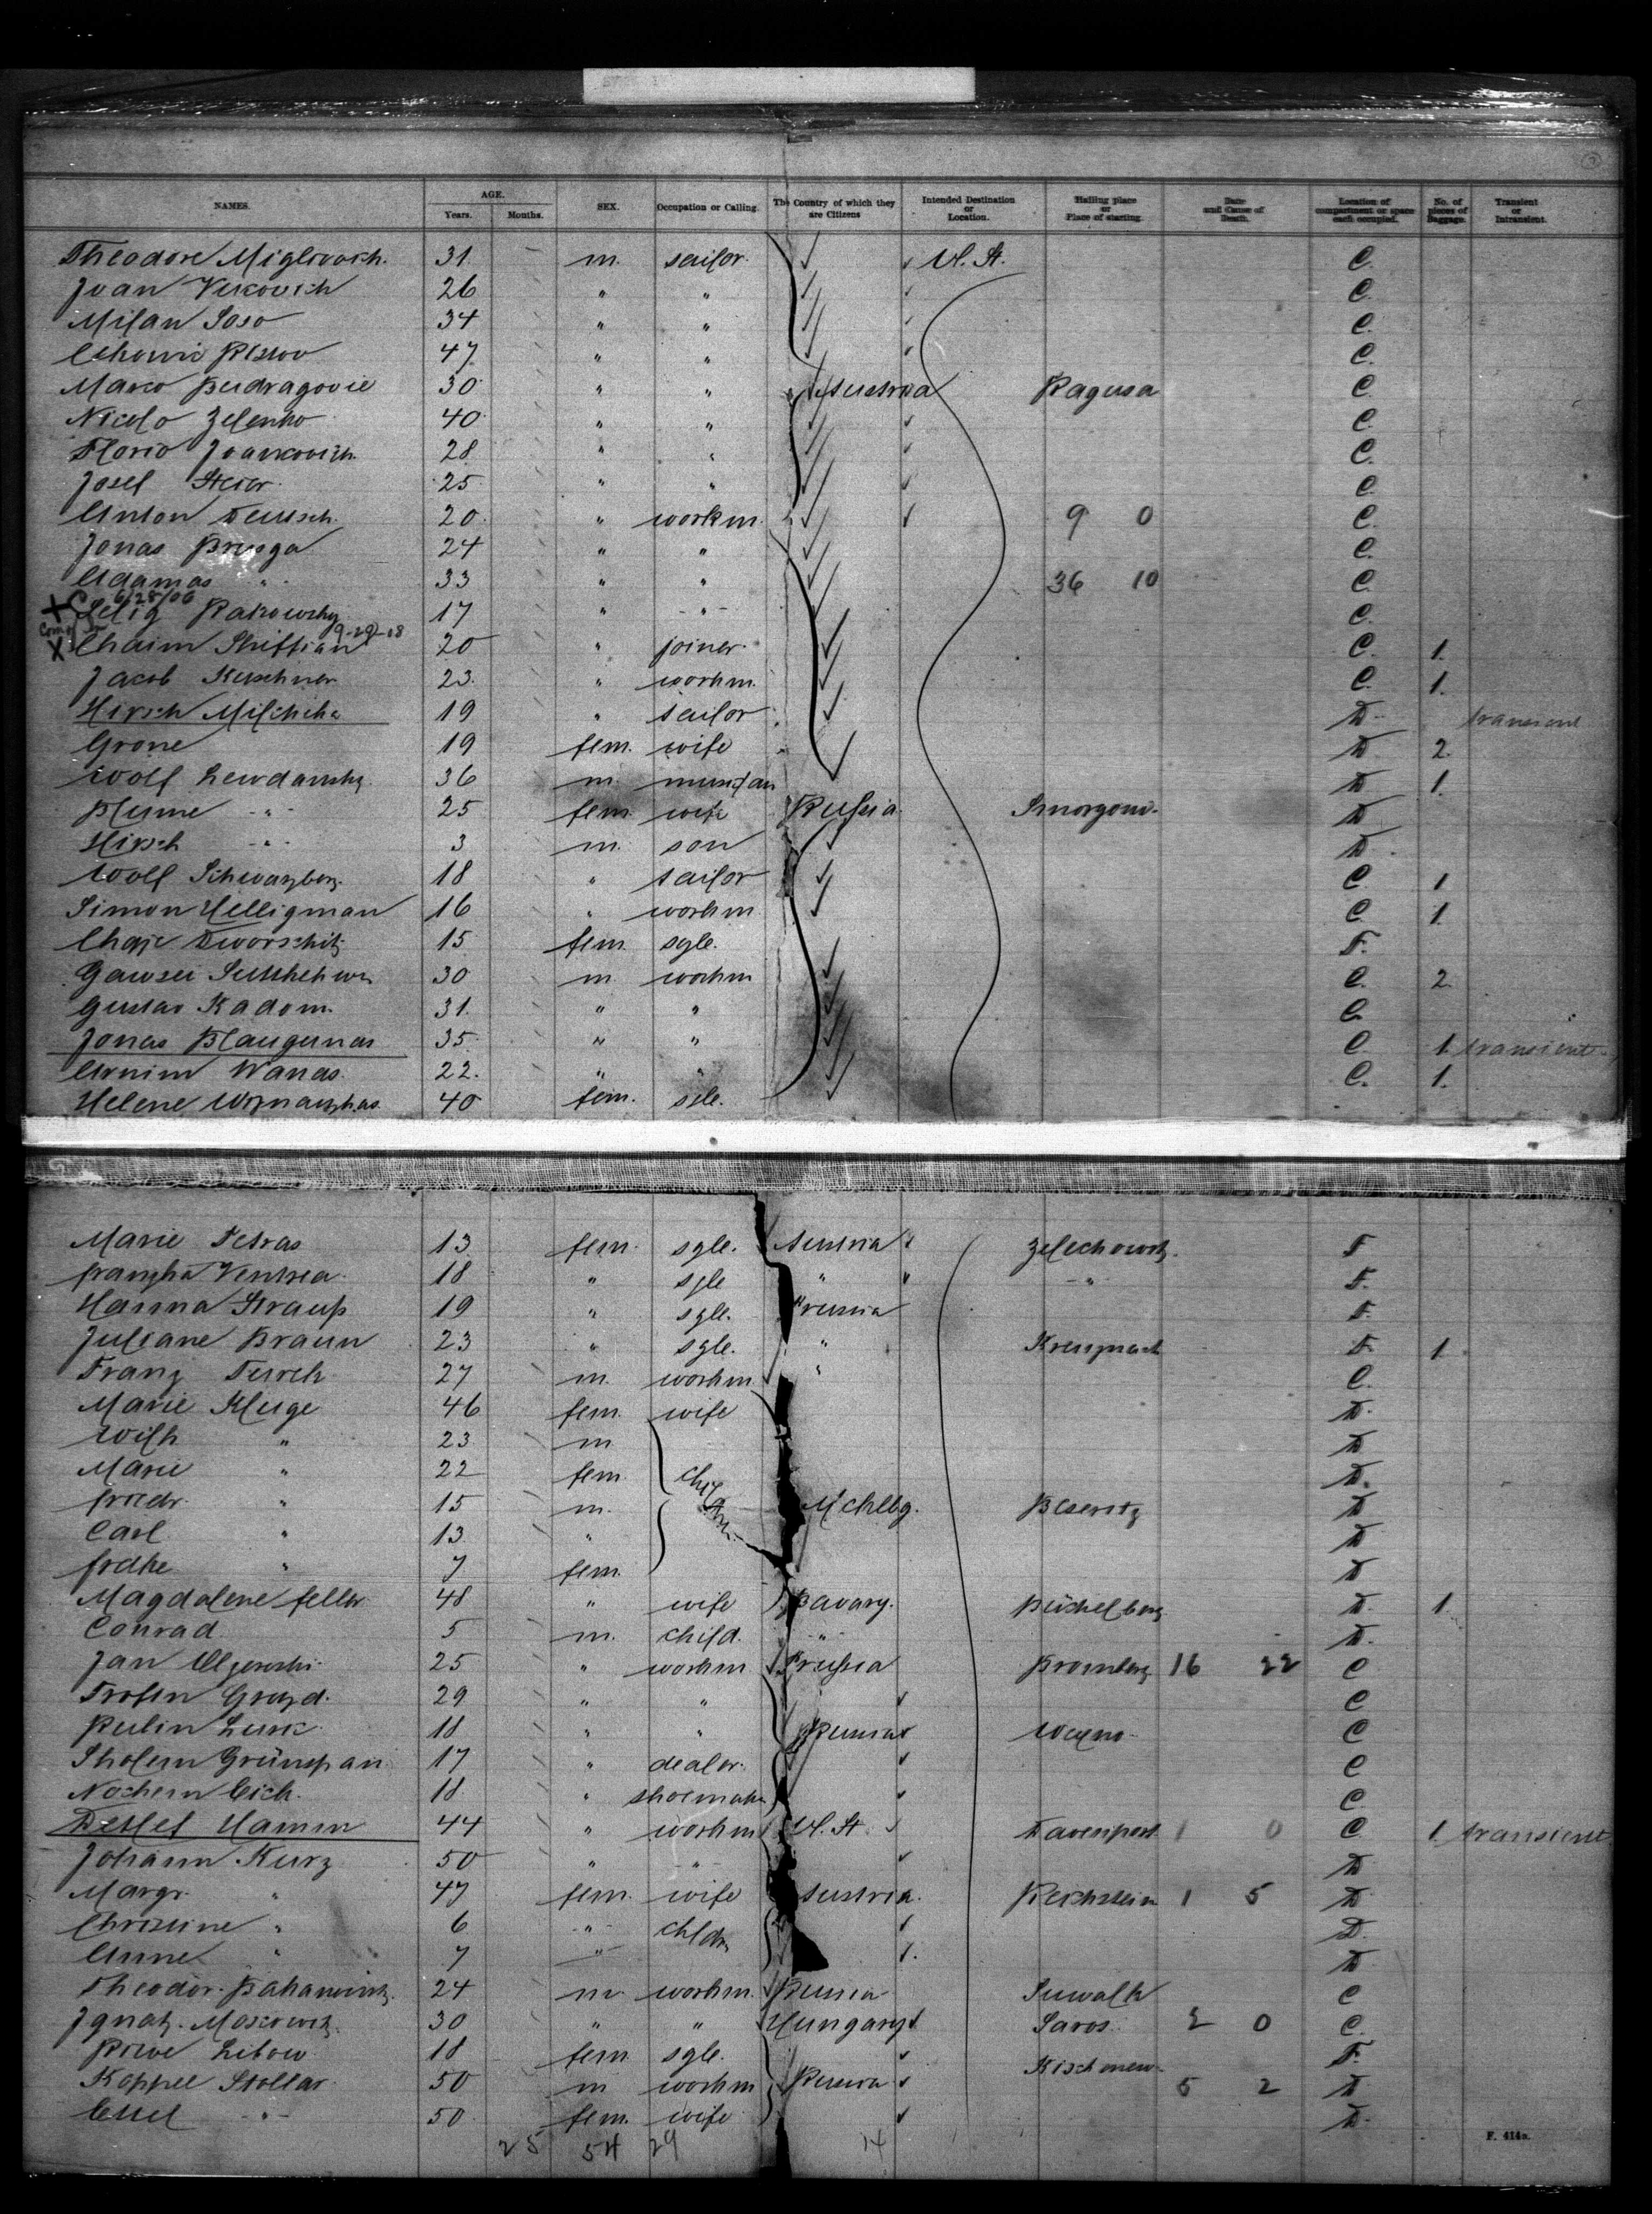 NAMES. AGE. Years. Months. SEX. Occupation or Calling. The Country of which they are Citizens Intended Destination or Location. Hailing place or Place of starting. Date and Cause of Death. Location of compartment or space each occupied. No. of pieces of Baggage. Transient or Intransient.
Theodore Miglovoich. 31. m. sailor. U. St. C.
Juan Vukovich 26 " " C.
Milan Soso 34 " " C.
47 " " C.
Marco Budragovic 30 " " Austria Ragusa C.
Nicolo Zelenko 40 " " C.
Florio Ivankovich. 28 " " C.
Josef Steier. 25 " " C.
Anton Deutsch. 20. " workm. 9 0 C.
Jonas 24 " " C.
Adamas " 33 " " 36 10 C.
6/28/06
X Selig Rakowzky 17 " " C.
9-29-18
X Chaim 20 " joiner. C. 1.
Jacob Kuschner 23. " workm. C. 1.
Hirsch Milchiker 19 " sailor D. transient
Grone 19 fem. wife D. 2.
Wolf Lewdansky. 36 m. D. 1.
Blume " 25 fem. wife Russia Smorgoni. D.
Hirsch " 3 m. son D.
Wolf Schwarzberg. 18 " sailor C. 1
Simon Helligman 16 " workm C. 1.
Chaje Dworschitz 15 fem. sgle. F.
30 m. workm C. 2.
Gustav Kadom. 31. " " C.
Jonas Blaugunas 35. " " C 1 transient.
Wanas. 22. " " C. 1.
Helene 40 fem. sgle.
Marie Petras 13 fem. sgle. Austria F
18 " sgle " " F.
Hanna Strauß 19 " sgle. Prussia F.
Juliane Braun 23 " sgle. " Kreuznach F. 1.
Franz 27 m. workm " C.
Marie Kluge 46 fem. wife D.
Wilh " 23 m D
Marie " 22 fem. children D.
Friedr. " 15 m. Mcklbg. D
Carl " 13 " D
Frdke " 7 fem. D
Magdalene Feller 48 " wife Bavary. Büchelberg D. 1.
Conrad 5 m. child. " D.
Jan 25 " workm Prussia Bromberg 16 22 C
29 " " C
18 " " Russia C
Sholem Grünspan 17 " dealer. C
Nochem Eich. 18 " shoemaker C
Detlef Hamm 44 " workm U. St Davenport 1 0 C 1. transient
Johann Kurz 50 " " D
Margr. " 47 fem. wife Austria. 1 5 D
Christine " 6 " chldn D.
Anne " 7 " D
Theodor 24 m workm. Russia Suwalk C
Ignatz. Moskowitz. 30 " " Hungary Saros. 2 0 C.
18 fem. sgle. Kischinew. F.
Koppel Stollar. 50 m workm Russia 5 2 D
" 50. fem. wife D.
25 54 29 14
F. 414a.